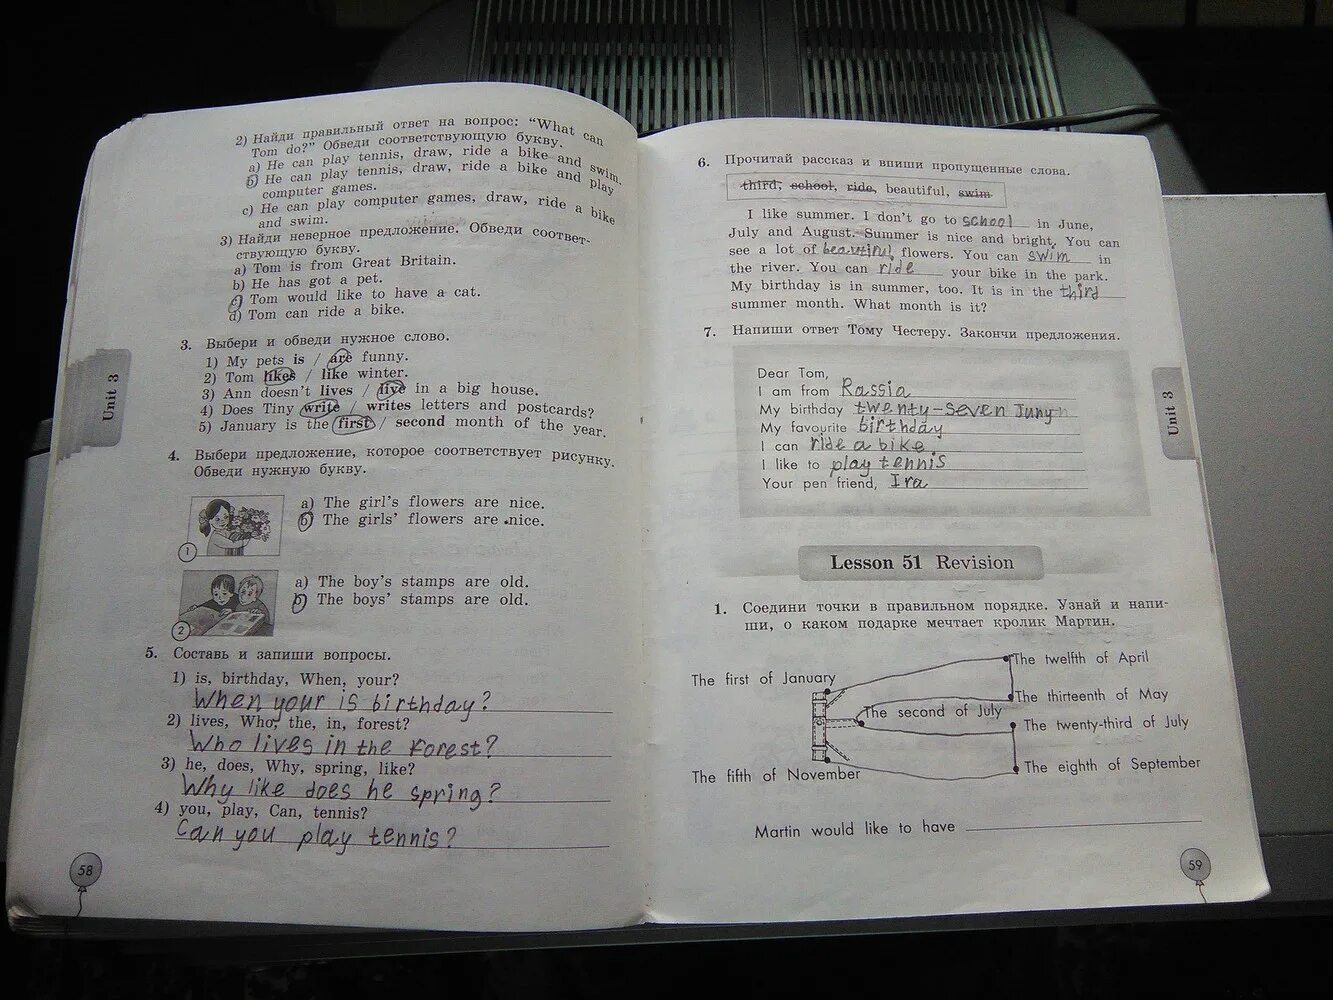 2) Найди правильный ответ на вопрос: "What can
Tom do?" Обведи соответствующую букву.
a) He can play tennis, draw, ride a bike and swim.
b) He can play tennis, draw, ride a bike and play
computer games.
c) He can play computer games, draw, ride a bike
and swim.
3) Найди неверное предложение. Обведи соответ-
ствующую букву.
a) Tom is from Great Britain.
b) He has got a pet.
c) Tom would like to have a cat.
d) Tom can ride a bike.
3. Выбери и обведи нужное слово.
1) My pets is / are funny.
2) Tom likes / like winter.
3) Ann doesn't lives / live in a big house.
4) Does Tiny write / writes letters and postcards?
5) January is the first / second month of the year.
Unit 3
4. Выбери предложение, которое соответствует рисунку.
Обведи нужную букву.
a) The girl's flowers are nice.
b) The girls' flowers are nice.
1
a) The boy's stamps are old.
b) The boys' stamps are old.
2
5. Составь и запиши вопросы.
1) is, birthday, When, your?
When your is birthday?
2) lives, Who, the, in, forest?
Who lives in the forest?
3) he, does, Why, spring, like?
Why like does he spring?
4) you, play, Can, tennis?
Can you play tennis?
58
6. Прочитай рассказ и впиши пропущенные слова.
third, school, ride, beautiful, swim
I like summer. I don't go to school in June,
July and August. Summer is nice and bright. You can
see a lot of beautiful flowers. You can swim in
the river. You can ride your bike in the park.
My birthday is in summer, too. It is in the third
summer month. What month is it?
7. Напиши ответ Тому Честеру. Закончи предложения.
Dear Tom,
I am from Rassia
My birthday twenty-seven Juny
My favourite birthday
I can ride a bike
I like to play tennis
Your pen friend, Ira
Unit 3
Lesson 51 Revision
1. Соедини точки в правильном порядке. Узнай и напи-
ши, о каком подарке мечтает кролик Мартин.
The twelfth of April
The first of January
The thirteenth of May
The second of July
The twenty-third of July
The fifth of November
The eighth of September
Martin would like to have
59